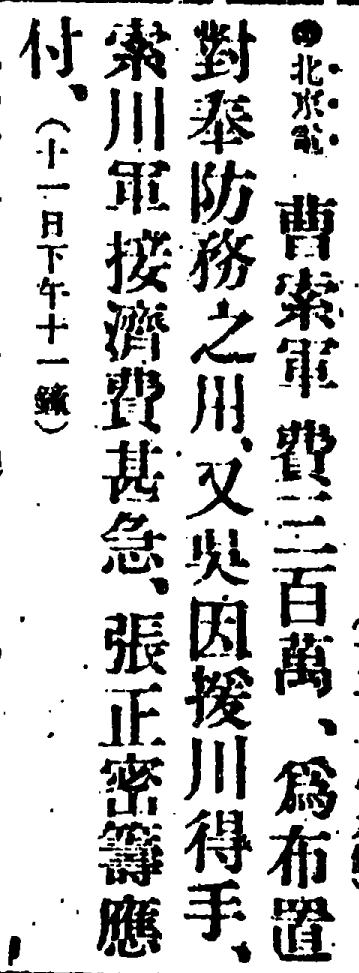 北京電 曹索軍費三百萬、爲布置
對奉防務之用、又吳因援川得手、
索川軍接濟費甚急、張正密籌應
付、（十一日下午十一鐘）